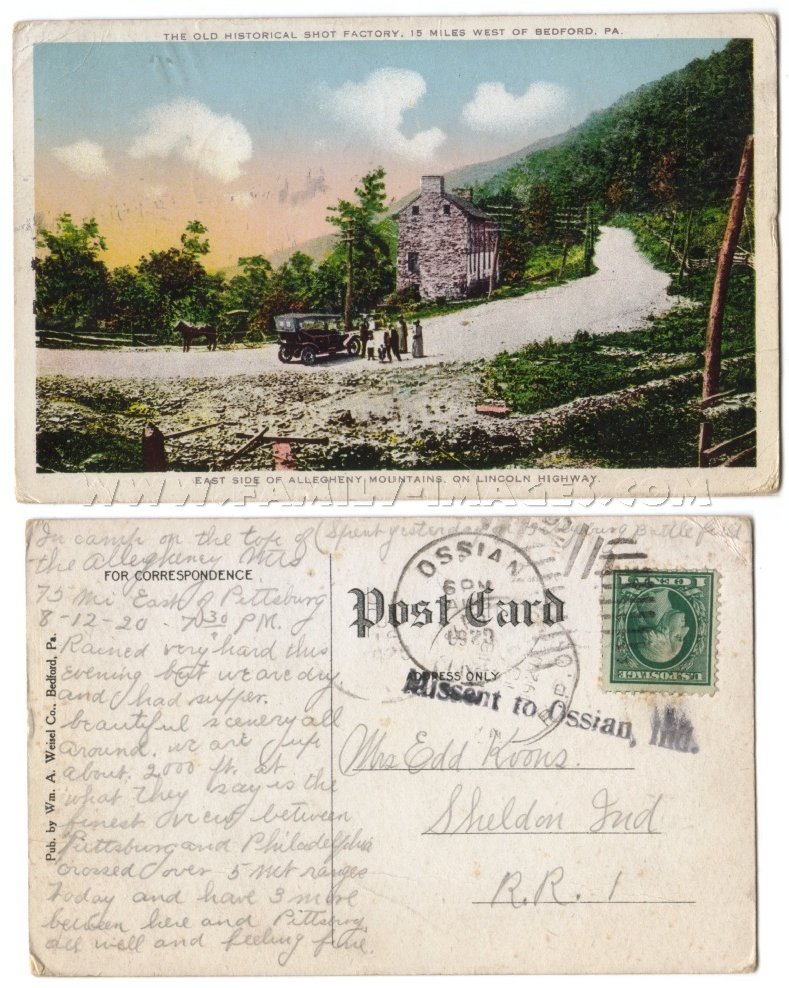 THE OLD HISTORICAL SHOT FACTORY, 15 MILES WEST OF BEDFORD, PA.
EAST SIDE OF ALLEGHENY MOUNTAINS, ON LINCOLN HIGHWAY.
WWW.FAMILY-IMAGES.COM
In camp on the top of (Spent yesterday Battle field
the Allegheney Mts
FOR CORRESPONDENCE
75 Mi East of Pittsburg
8-12-20 - 7:30 P.M.
Rained very hard this
evening but we are dry
and had supper.
beautiful scenery all
around. we are up
about 2000 ft. at
what they say is the
finest view between
Pittsburg and Philadelphia
crossed over 5 Mt ranges
Today and have 3 more
between here and Pittsburg
all well and feeling fine.
Pub. by Wm. A. Weisel Co., Bedford, Pa.
OSSIAN
Post Card
ADDRESS ONLY
1 CENT 1
U.S.POSTAGE
Missent to Ossian, Ind.
Mrs Edd Koons.
Sheldon Ind
R.R. 1